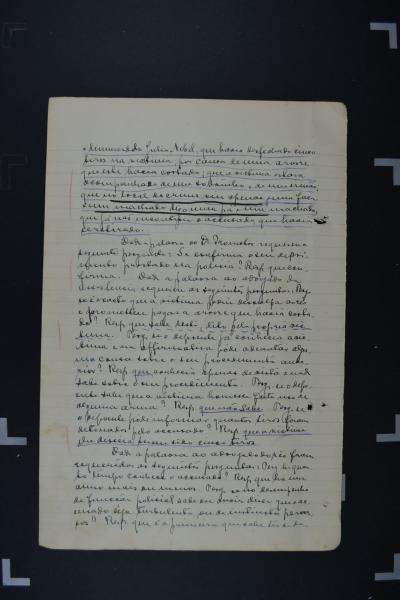 o denunciado Julio Nobil, que havia desfechado cinco
tiros na victima, por causa de uma arvore
que este havia cortado; que a victima estava
acompanhado de um sobrinho e de um menino;
que no local do crime viu apenas uma faca
um machado que
que já não encontrou o accusado que havia
Dada a palavra ao Dr Promotor requereu o
seguinte pergunta: Se confirma o seu depoi-
mento prestado na policia? Resp. que con-
firma. Dada a palavra ao advogado da
requereu as seguintes perguntas: Perg.
se é exacto que a victima pediu desculpa
e prometteu pagar a arvore que havia corta-
do? Resp. que pela propria vic-
tima. Perg. se o depoente já conhecia a vic-
tima e na affirmativa póde adeantar algu-
ma cousa sobre o seu procedimento ante-
rior? Resp. que conhecia apenas de vista e nada
sabe sobre o seu procedimento. Perg. se o depo-
ente sabe que a victima houvesse feito uso de
alguma arma? Resp. que não sabe. Perg. se
o depoente póde informar quantos tiros foram
detonados pelo accusado? Resp. que a victima
lhe dissera terem sido cinco tiros.
Dada a palavra ao advogado do réo foram
requeridas as seguintes perguntas: Perg. ha quan-
to tempo conhece o accusado? Resp. que ha um
anno mais ou menos. Perg. se no desempenho
de funcção policial sabe ou ouviu dizer que o ac-
cusado seja turbulento ou de instinctos perver-
sos? Resp. que é a primeira que sabe